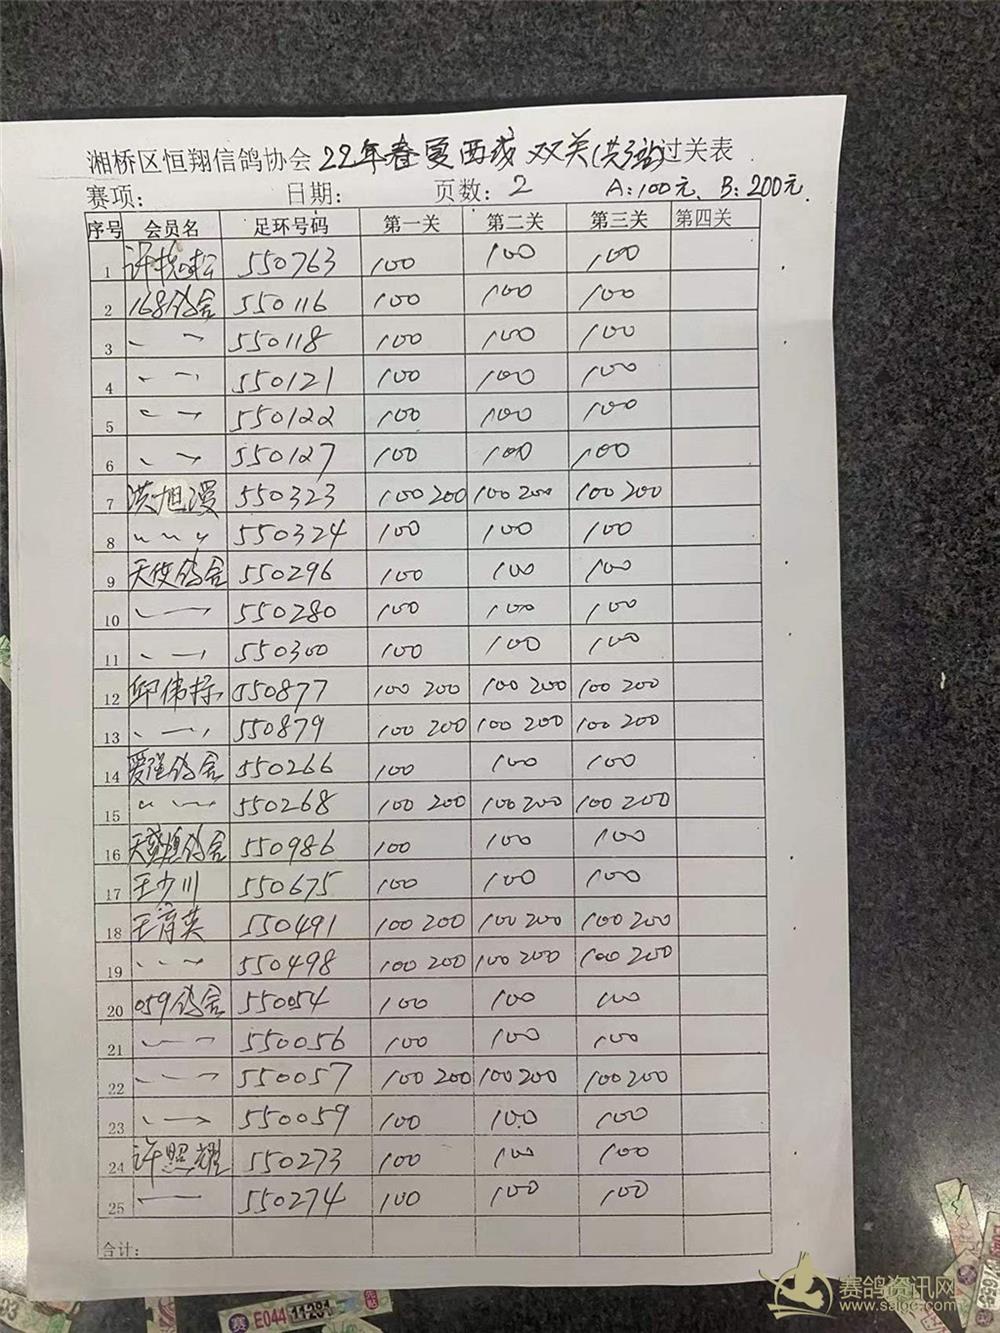 湘桥区恒翔信鸽协会22年春夏西线双关(共3站)过关表
赛项: 日期: 页数: 2 A:100元、B:200元.
序号 会员名 足环号码 第一关 第二关 第三关 第四关
1 550763 100 100 100
2 168鸽舍 550116 100 100 100
3 〃 〃 550118 100 100 100
4 〃 〃 550121 100 100 100
5 〃 〃 550122 100 100 100
6 〃 〃 550127 100 100 100
7 洪旭漫 550323 100 200 100 200 100 200
8 〃 〃 〃 550324 100 100 100
9 天使鸽舍 550296 100 100 100
10 〃 〃 550280 100 100 100
11 〃 〃 550300 100 100 100
12 邱伟标 550877 100 200 100 200 100 200
13 〃 〃 550879 100 200 100 200 100 200
14 爱强鸽舍 550266 100 100 100
15 〃 〃 550268 100 200 100 200 100 200
16 鸽舍 550986 100 100 100
17 王少川 550675 100 100 100
18 王育英 550491 100 200 100 200 100 200
19 〃 〃 550498 100 200 100 200 100 200
20 059鸽舍 550054 100 100 100
21 〃 〃 550056 100 100 100
22 〃 〃 550057 100 200 100 200 100 200
23 〃 〃 550059 100 100 100
24 许照耀 550273 100 100 100
25 〃 550274 100 100 100
合计:
赛 E044 11281
赛鸽资讯网
www.saige.com